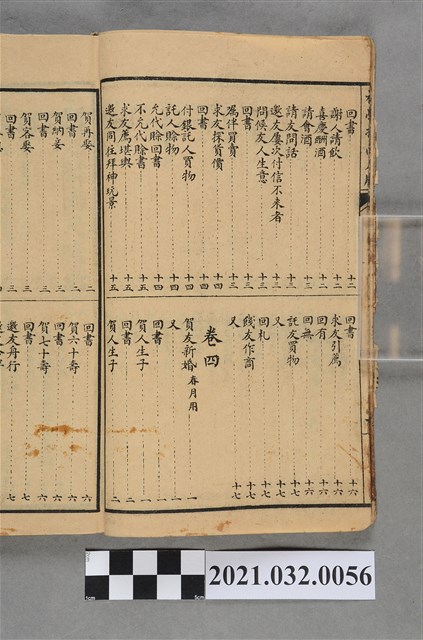 回書 十二
謝人請飲 十二
喜慶酬酒 十二
請會酒 十二
請友問話 十二
邀友屢次付信不來者 十三
問候友人生意 十三
回書 十三
薦伴買賣 十三
求友探貨價 十四
回書 十四
付銀託人買物 十四
託人賒物 十四
允代賒回書 十四
不允代賒書 十五
求友薦堪輿 十五
邀友同往拜神玩景 十五
回書 十六
求友引薦 十六
回有 十六
回無 十六
託友買物 十七
又 十七
回札 十七
餞友作商 十七
又 十七
卷四
賀友新婚 春月用 一
又 一
回書 一
賀人生子 一
回書 二
賀人生子 二
賀再娶 二
回書 二
賀納妾 三
回書 三
賀客娶 三
回書 三
回書 六
賀六十壽 六
回書 六
賀七十壽 六
回書 七
邀友舟行 七
2021.032.0056
1cm
5cm